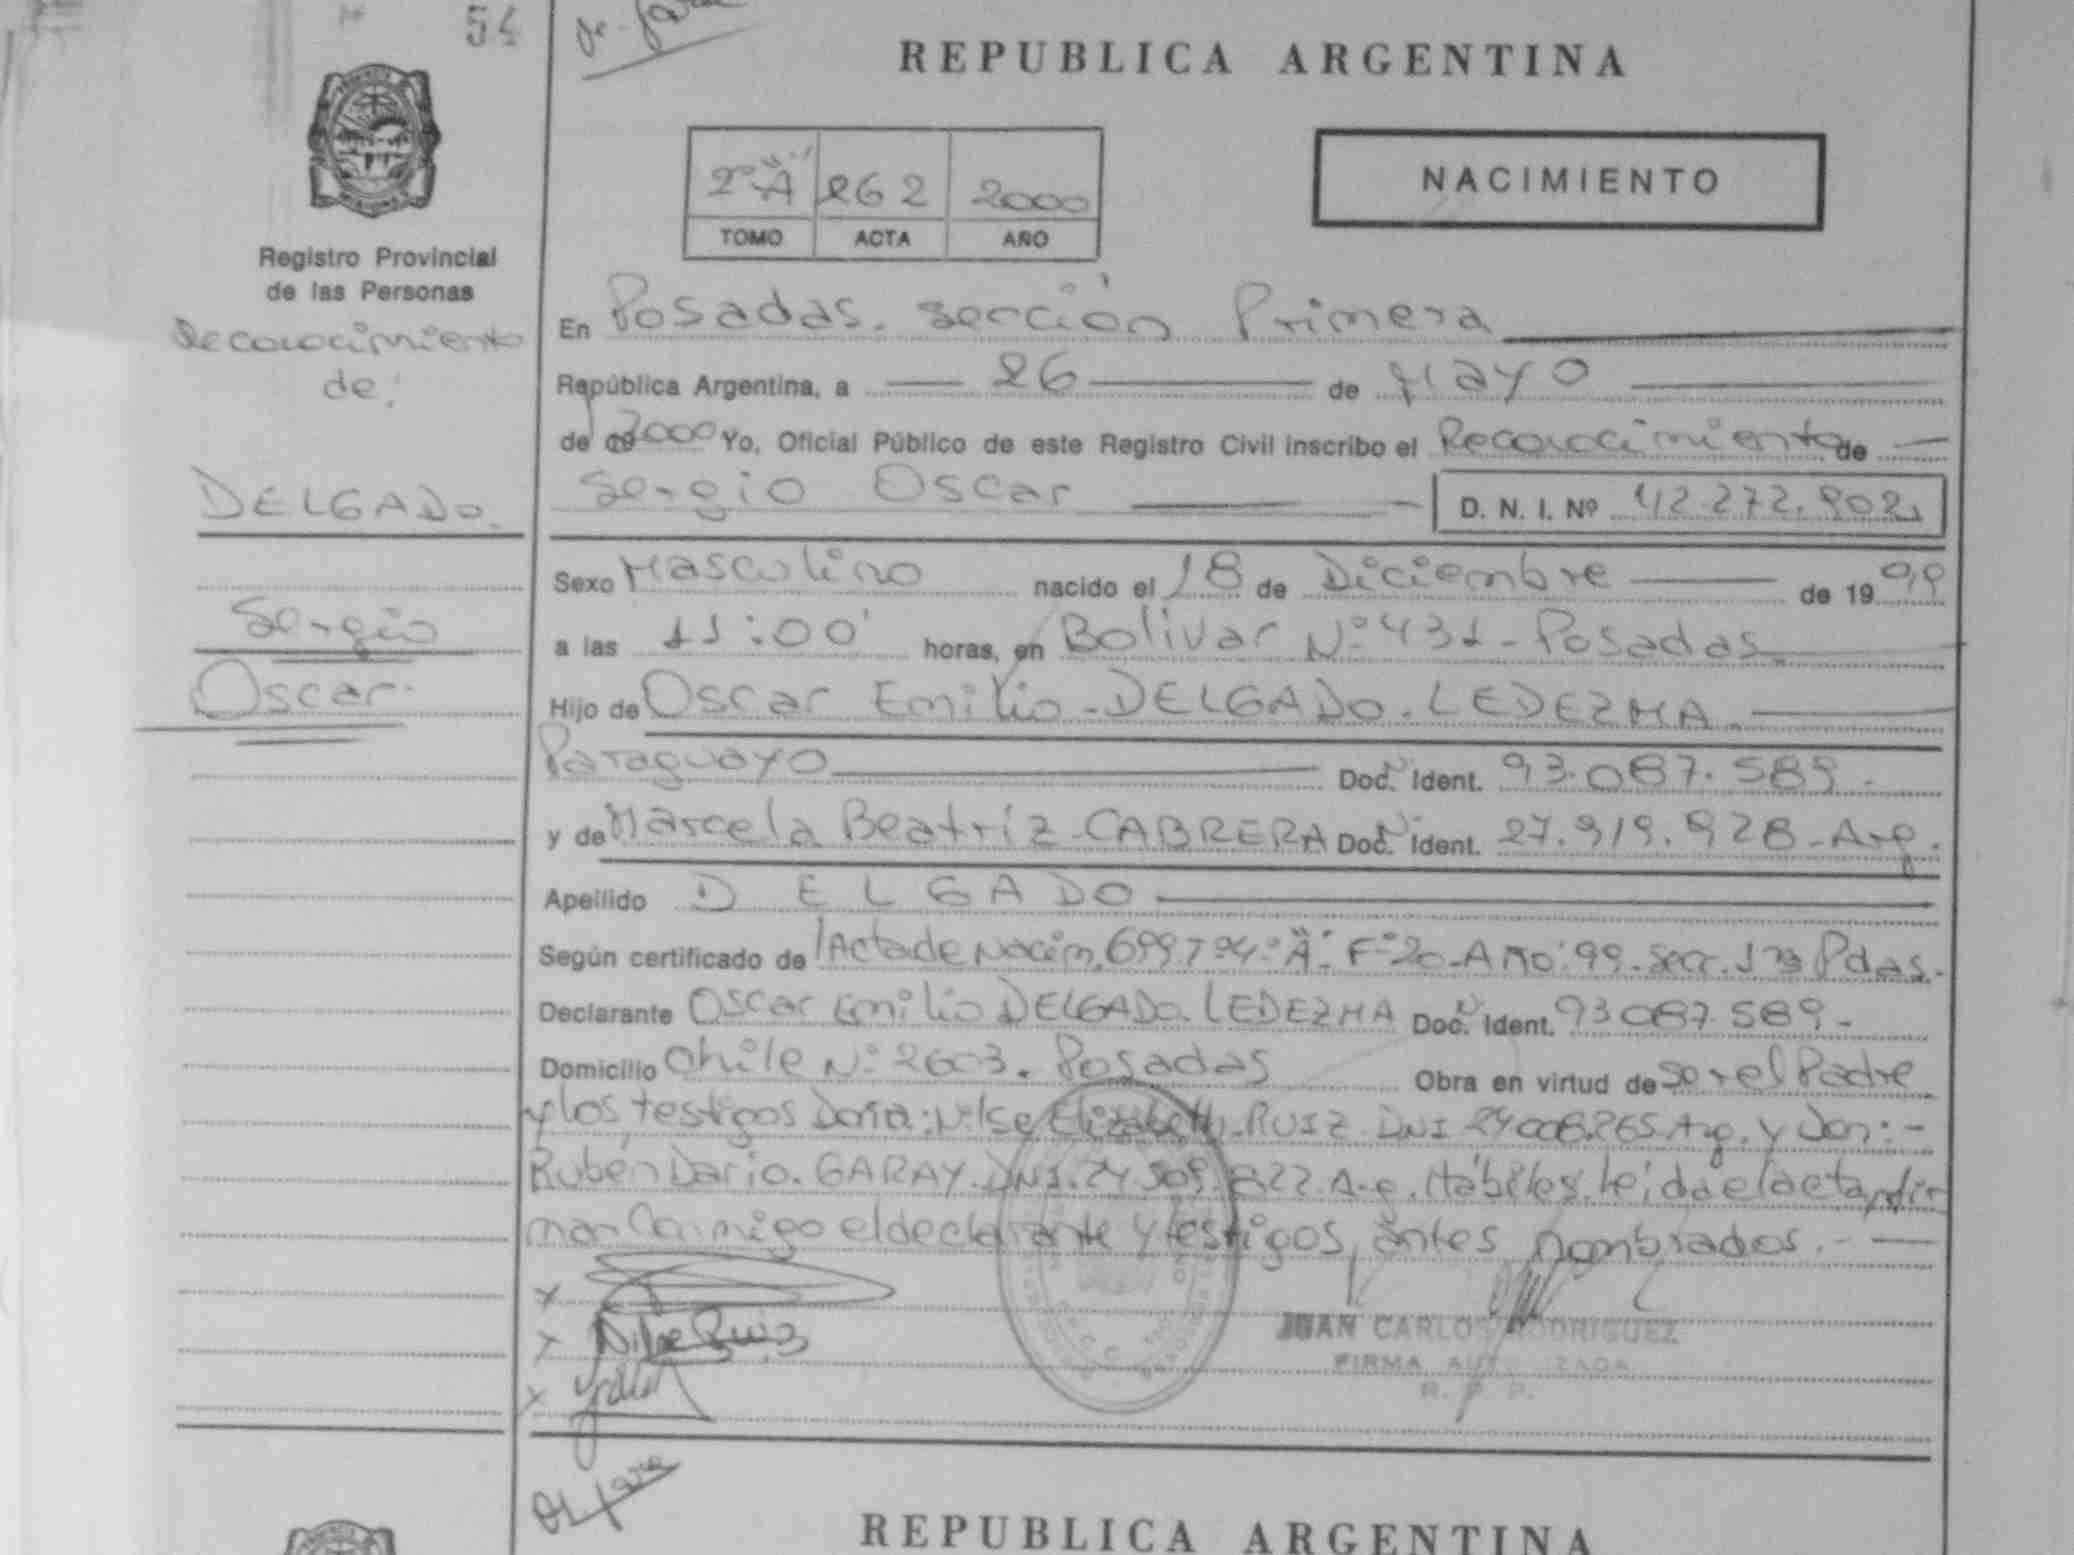 54
REPUBLICA ARGENTINA
2º "A" 262 2000
TOMO ACTA AÑO
NACIMIENTO
Registro Provincial
de las Personas
Reconocimiento
de:
DELGADO.
Sergio
Oscar.
En Posadas. Sección Primera
República Argentina, a 26 de Mayo
de 2000 Yo, Oficial Público de este Registro Civil inscribo el Reconocimiento de
Sergio Oscar D. N. I. Nº 42.272.902
Sexo Masculino nacido el 18 de Diciembre de 1999
a las 11:00 horas, en Bolivar Nº 431 - Posadas.
Hijo de Oscar Emilio - DELGADO. LEDEZMA.
Paraguayo Doc. Ident. 93.087.589.
y de Marcela Beatriz - CABRERA Doc. Ident. 27.919.928 - Arg.
Apellido DELGADO
Según certificado de Acta de Nacim. 699 Tº 4º "A" - Fº 20 - Año 99. Secc. 1ra Pdas.
Declarante Oscar Emilio DELGADO. LEDEZMA Doc. Ident. 93087.589 -
Domicilio Chile Nº 2603. Posadas Obra en virtud de ser el Padre
y los testigos Doña: Nilse Elizabeth. RUIZ. DNI 24008265 Arg. y Don: -
Rubén Dario. GARAY. DNI. 24.509.822 Arg. Hábiles. Leída el acta, fir
man Conmigo el declarante y testigos, antes nombrados. -
x
x Nilse Ruiz
x
JUAN CARLOS RODRIGUEZ
FIRMA AUTORIZADA
R. P. P.
REPUBLICA ARGENTINA